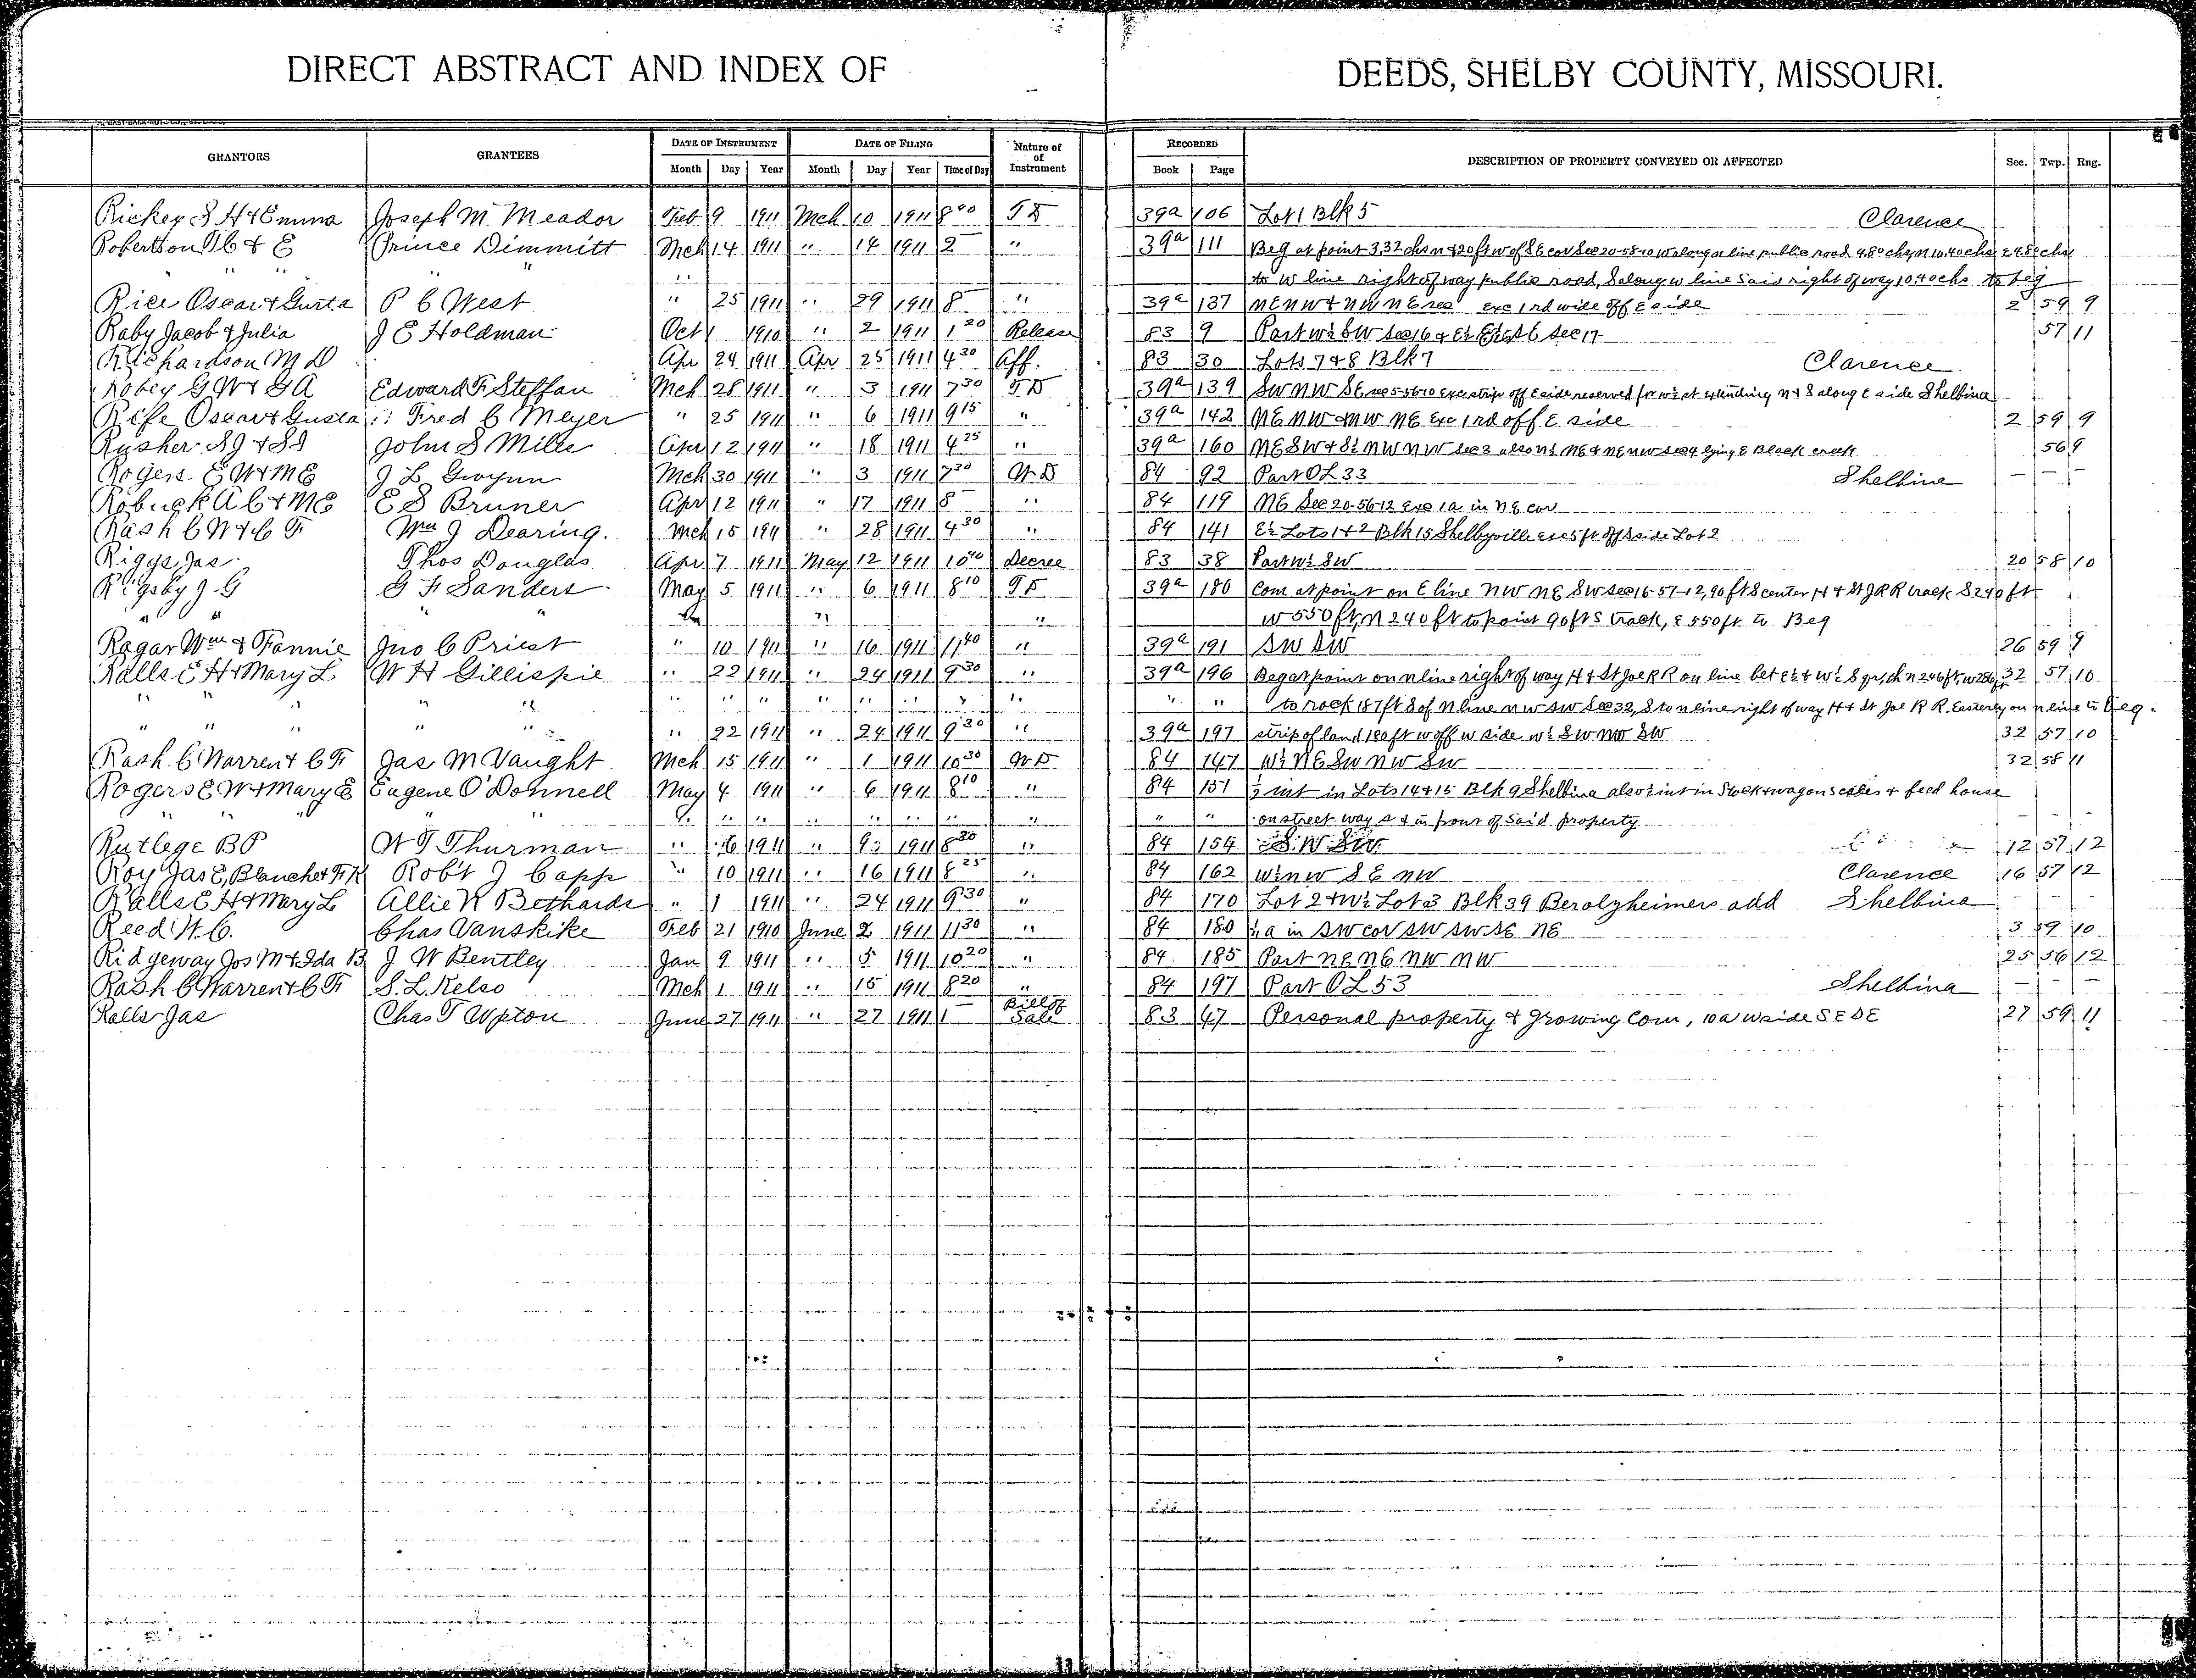 DIRECT ABSTRACT AND INDEX OF DEEDS, SHELBY COUNTY, MISSOURI.
GRANTORS GRANTEES DATE OF INSTRUMENT DATE OF FILING Nature of of Instrument RECORDED DESCRIPTION OF PROPERTY CONVEYED OR AFFECTED Sec. Twp. Rng.
Month Day Year Month Day Year Time of Day Book Page
Rickey S H & Emma Joseph M Meador Feb 9 1911 Mch 10 1911 8 40 T D 39a 106 Lot 1 Blk 5 Clarence
Robertson T C & E Prince Dimmitt Mch 14 1911 " 14 1911 2 " 39a 111 Beg at point 3.32 chs n & 20 ft w of S E cor Sec 20-58-10 W along n line public road 4.80 chs, n 10.40 chs E 4.80 chs
" " " " " to W line right of way public road, S along w line said right of way 10.40 chs to beg
Rice Oscar & Gusta P C West " 25 1911 " 29 1911 8 " 39a 137 NE NW & NW NE exc 1 rd wide off E side 2 59 9
Raby Jacob & Julia J E Holdman Oct 1 1910 " 2 1911 1 20 Release 83 9 Part W½ SW Sec 16 & E½ Sec 17 57 11
Richardson M D Apr 24 1911 Apr 25 1911 4 30 Aff. 83 30 Lots 7 & 8 Blk 7 Clarence
Robey G W & G A Edward F Steffan Mch 28 1911 " 3 1911 7 30 T D 39a 139 SW NW SE sec 5-56-10 Exc strip off E side reserved for W½ st extending N & S along E side Shelbina
Rife Oscar & Gusta Fred C Meyer " 25 1911 " 6 1911 9 15 " 39a 142 NE NW & NW NE Exc 1 rd off E side 2 59 9
Rusher S J & S I John S Mills Apr 12 1911 " 18 1911 4 25 " 39a 160 NE SW & S½ NW NW Sec 3 also N½ NE & NE NW Sec 4 lying E Black creek 56 9
Rogers E W & M E J L Gwynn Mch 30 1911 " 3 1911 7 30 W D 84 92 Part O L 33 Shelbina — — —
Robuck A C & M E E S Bruner Apr 12 1911 " 17 1911 8 " 84 119 NE Sec 20-56-12 Exc 1 a in NE cor
Rash C W & C F Wm J Dearing. Mch 15 1911 " 28 1911 4 30 " 84 141 E½ Lots 1 & 2 Blk 15 Shelbyville exc 5 ft off S side Lot 2
Riggs Jas Thos Douglas Apr 7 1911 May 12 1911 10 40 Decree 83 38 Part W½ SW 20 58 10
Rigsby J G G F Sanders May 5 1911 " 6 1911 8 10 T D 39a 180 Com at point on E line NW NE SW sec 16-57-12, 90 ft S center H & St J R R track S 240 ft
" " " " " " " W 550 ft, N 240 ft to point 90 ft S track, E 550 ft to Beg
Ragar Wm & Fannie Jno C Priest " 10 1911 " 16 1911 11 40 " 39a 191 SW SW 26 59 9
Ralls E H & Mary L W H Gillispie " 22 1911 " 24 1911 9 30 " 39a 196 Beg at point on N line right of way H & St Joe R R on line bet E½ & W½ S qr, th n 246 ft, w 286 ft 32 57 10
" " " " " " " " " " " " " to rock 187 ft S of N line NW SW Sec 32, S to n line right of way H & St Joe R R. Easterly on n line to beg.
" " " " " 22 1911 " 24 1911 9 30 " 39a 197 strip of land 180 ft w off w side W½ SW NW SW 32 57 10
Rash C Warren & C F Jas M Vaught Mch 15 1911 " 1 1911 10 30 W D 84 147 W½ NE SW NW SW 32 58 11
Rogers E W & Mary E Eugene O'Donnell May 4 1911 " 6 1911 8 10 " 84 151 ½ int in Lots 14 & 15 Blk 9 Shelbina also ½ int in Stock & wagon scales & feed house
" " " " " " " " " " " " " on street way S & in front of said property
Rutlege B P W T Thurman " 6 1911 " 9 1911 8 20 " 84 154 S W SW 12 57 12
Roy Jas E, Blanche & F K Robt J Capp " 10 1911 " 16 1911 8 25 " 84 162 W½ NW SE NW Clarence 16 57 12
Ralls E H & Mary L Allie K Bethards " 1 1911 " 24 1911 9 30 " 84 170 Lot 2 & W½ Lot 3 Blk 39 Berolzheimers add Shelbina - - -
Reed W. C. Chas Vanskike Feb 21 1910 June 2 1911 11 30 " 84 180 ½ a in SW cor SW SW SE NE 3 59 10
Ridgeway Jos M & Ida B J W Bentley Jan 9 1911 " 5 1911 10 20 " 84 185 Part NE NE NW NW 25 56 12
Rash C Warren & C F S. L. Kelso Mch 1 1911 " 15 1911 8 20 " 84 197 Part O L 53 Shelbina — - -
Ralls Jas Chas T Upton June 27 1911 " 27 1911 1 Bill of Sale 83 47 Personal property & growing Corn, 10 a W side SE SE 27 59 11